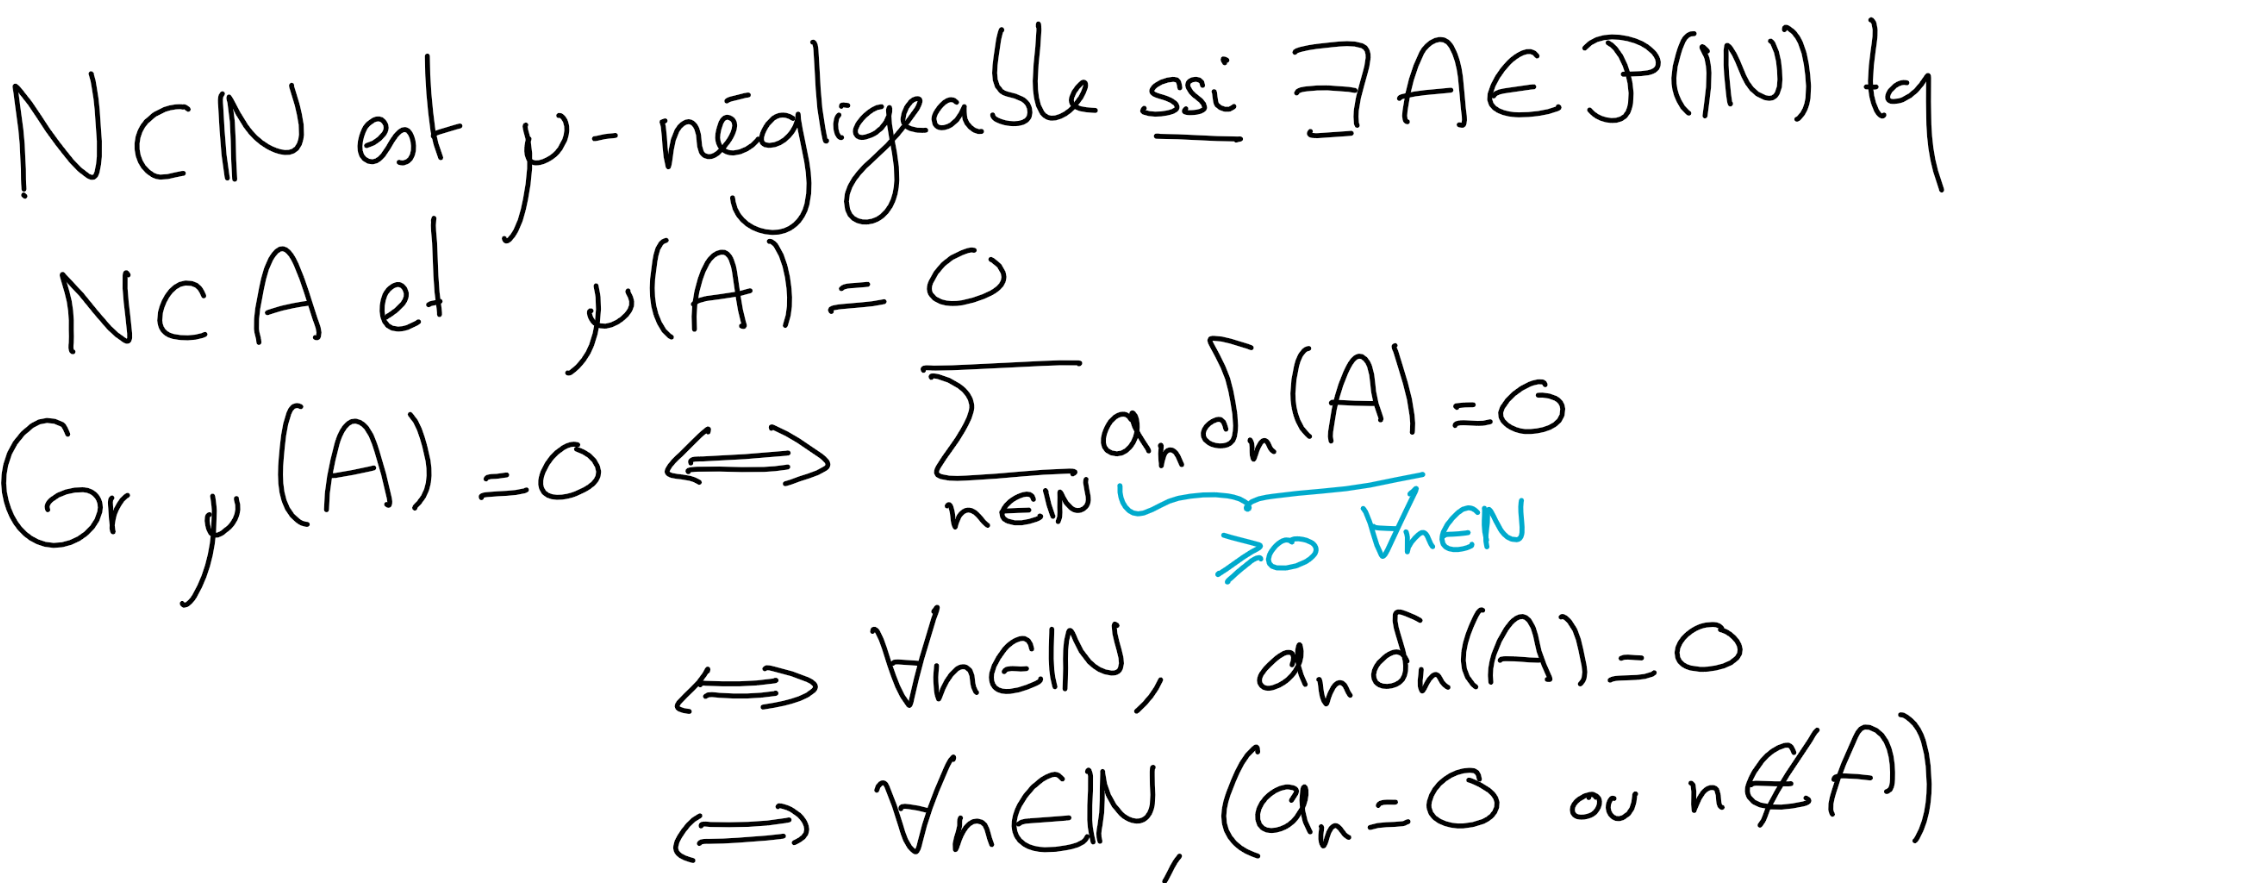 N⊂ℕ est μ-négligeable ssi ∃A∈𝒫(ℕ) tq
N⊂A et μ(A)=0
Or μ(A)=0 ⟺ ∑_{n∈ℕ} a_n δ_n(A)=0
≥0 ∀n∈ℕ
⟺ ∀n∈ℕ, a_n δ_n(A)=0
⟺ ∀n∈ℕ, (a_n=0 ou n∉A)